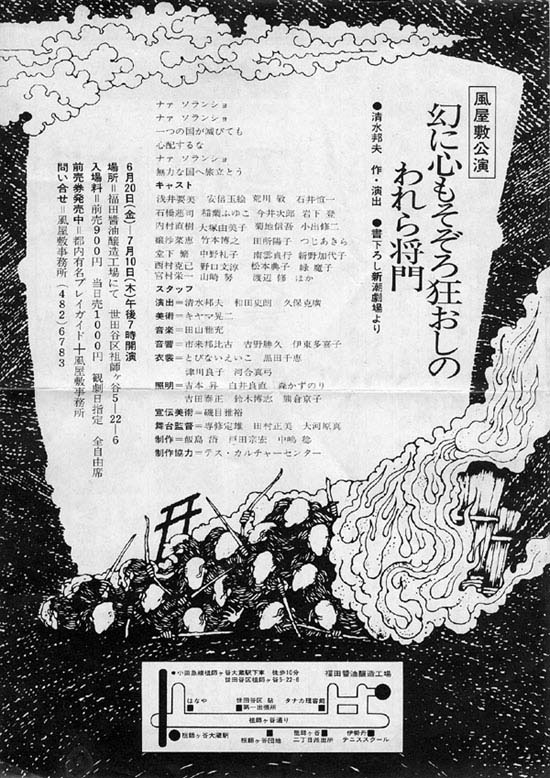 風屋敷公演
幻に心もそぞろ狂おしの
われら将門
●清水邦夫 作・演出 ●書下ろし新潮劇場より
ナァ ソランショ
ナァ ソランショ
一つの国が滅びても
心配するな
ナァ ソランショ
無力な国へ旅立とう
キャスト
浅井要美 安信玉絵 荒川 敏 石井慎一
石橋恵司 稲葉ふゆこ 今井次郎 岩下 登
内村直樹 大塚由美子 菊地信吾 小出修二
嬢沙菜恵 竹本博之 田所陽子 つじあきら
堂下 繁 中野礼子 南雲貞行 新野加代子
西村克己 野口文淳 松本典子 緑 魔子
宮村栄一 山崎 努 渡辺 修 ほか
スタッフ
演出=清水邦夫 和田史朗 久保克廣
美術=キヤマ晃二
音楽=田山雅充
音響=市来邦比古 吉野勝久 伊東多喜子
衣裳=とびないえいこ 黒田千恵
津川良子 河合真弓
照明=吉本 昇 白井良直 森かずのり
吉田泰正 鈴木博志 熊倉京子
宣伝美術=磯目雅裕
舞台監督=専修定雄 田村正美 大河原真
制作=飯島 浩 戸田宗宏 中嶋 稔
制作協力=テス・カルチャーセンター
6月20日(金)―7月10日(木)午後7時開演
場所=福田醤油醸造工場にて 世田谷区祖師ヶ谷5―22―6
入場料=前売900円 当日売1000円 観劇日指定 全自由席
前売券発売中=都内有名プレイガイド+風屋敷事務所
問い合せ=風屋敷事務所(482)6783
●小田急線祖師ヶ谷大蔵駅下車 徒歩10分
世田谷区祖師ヶ谷5-22-6
福田醤油醸造工場
はなや
世田谷区 砧
第一出張所
タナカ理容館
祖師ヶ谷通り
祖師ヶ谷大蔵駅
祖師ヶ谷団地
祖師ヶ谷
二丁目派出所
伊勢丹
テニススクール